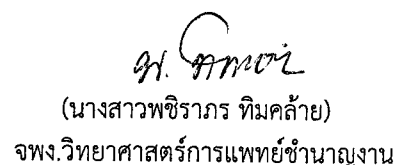 (นางสาวพชิราภร ทิมคล้าย)
จพง.วิทยาศาสตร์การแพทย์ชำนาญงาน